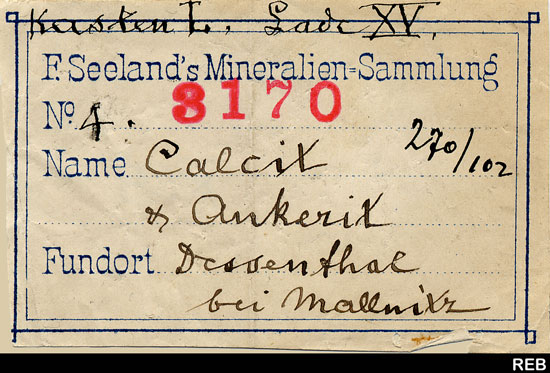 Kasten I., Lade XV.
F. Seeland's Mineralien=Sammlung
No. 4. 3170
270/102
Name Calcit
& Ankerit
Fundort Dössenthal
bei Mallnitz
REB